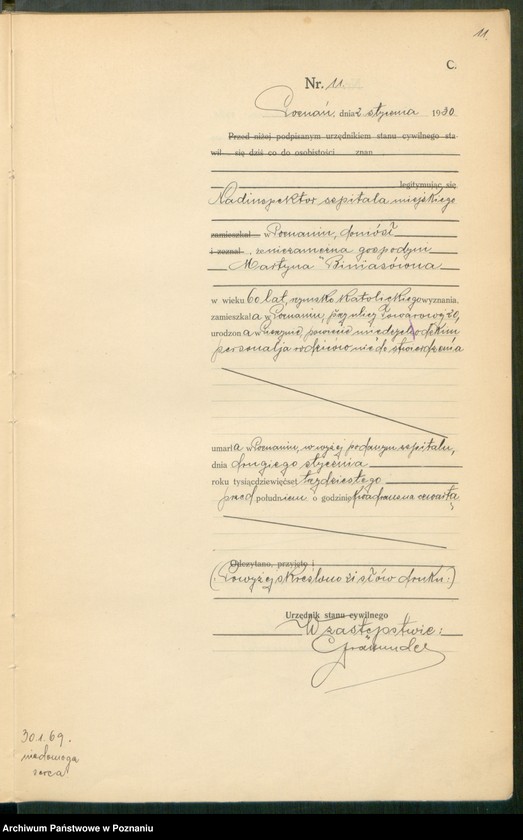 11
C.
Nr. 11.
Poznań, dnia 2 stycznia 1930
Przed niżej podpisanym urzędnikiem stanu cywilnego sta
wił się dziś co do osobistości znan
legitymując się
Nadinspektor szpitala miejskiego
zamieszkał w Poznaniu, doniósł
i zeznał, że niezamężna gospodyni
Martyna Biniasówna
w wieku 60 lat, rzymsko katolickiego wyznania,
zamieszkała w Poznaniu, przy ulicy Towarowej
urodzona w powiecie międzychodzkim
personalja rodziców nie do stwierdzenia
umarła w Poznaniu, w wyżej podanym szpitalu,
dnia drugiego stycznia
roku tysiącdziewięćset trzydziestego
przed południem o godzinie kwadrans na czwartą
Odczytano, przyjęto i
(Powyżej skreślono słów druku:)
Urzędnik stanu cywilnego
W zastępstwie:
30.1.69.
niedomoga
serca
Archiwum Państwowe w Poznaniu